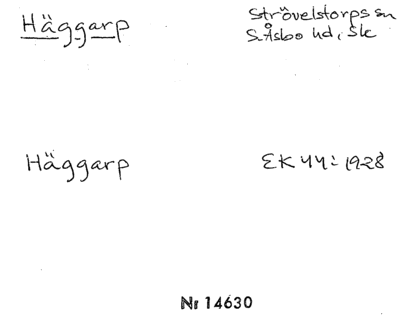 Häggarp Strövelstorps sn
S.Åsbo hd, Sk
Häggarp EK 44: 1928
Nr 14630